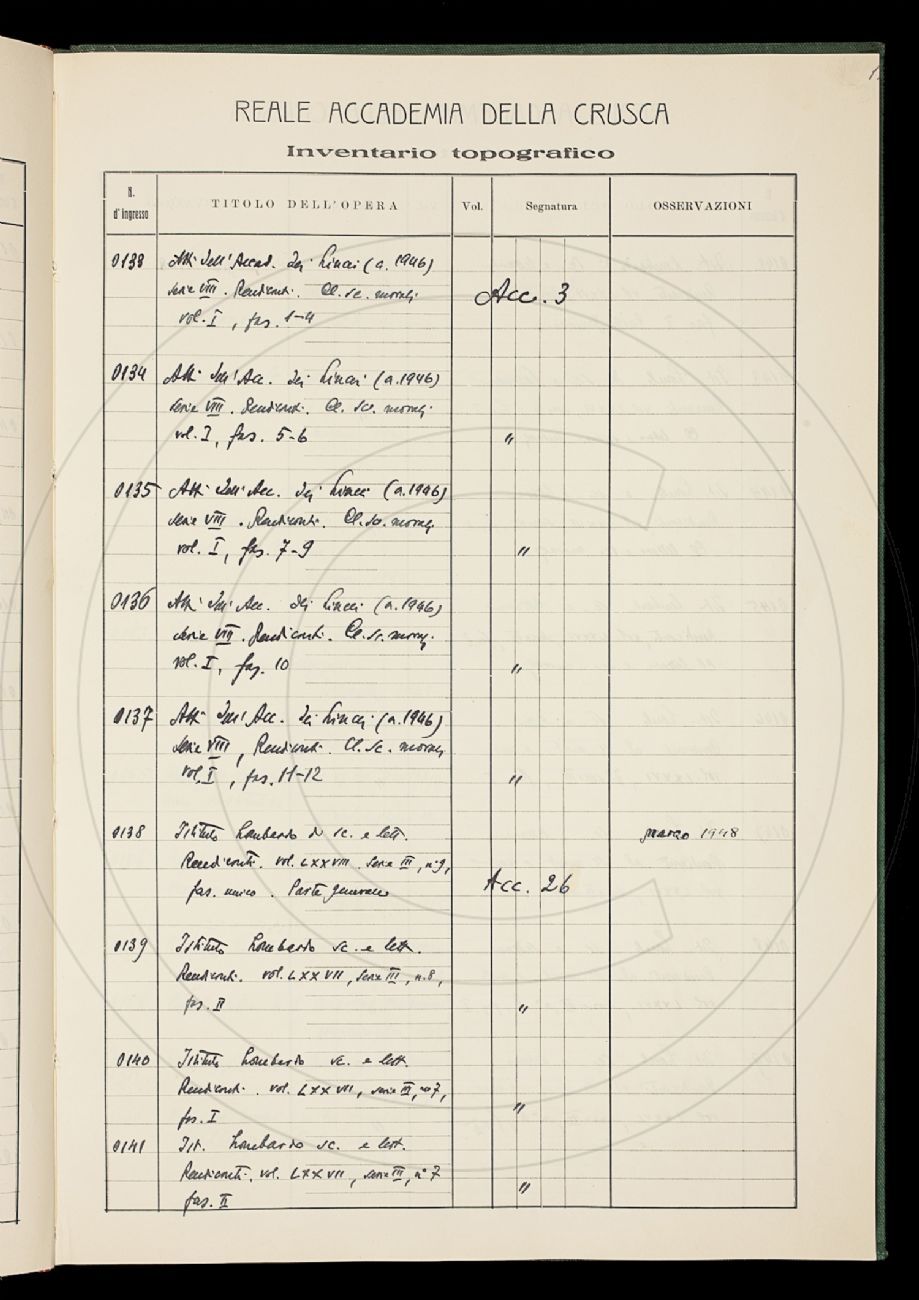 REALE ACCADEMIA DELLA CRUSCA
Inventario topografico
N. d'ingresso TITOLO DELL'OPERA Vol. Segnatura OSSERVAZIONI
0133 Atti dell'Accad. dei Lincei (a. 1946)
serie VIII. Rendiconti. Cl. sc. morali
Acc. 3
vol. I, fas. 1-4
0134 Atti dell'Acc. dei Lincei (a. 1946)
serie VIII. Rendiconti. Cl. sc. morali.
vol. I, fas. 5-6 "
0135 Atti dell'Acc. dei Lincei (a. 1946)
serie VIII. Rendiconti. Cl. sc. morali
vol. I, fas. 7-9 "
0136 Atti dell'Acc. dei Lincei (a. 1946)
serie VIII. Rendiconti. Cl. sc. morali.
vol. I, fas. 10 "
0137 Atti dell'Acc. dei Lincei (a. 1946)
serie VIII, Rendiconti. Cl. sc. morali
vol. I, fas. 11-12 "
0138 Istituto Lombardo di sc. e lett. marzo 1948
Rendiconti. vol. LXXVIII. serie III, n° 9,
fas. unico. Parte generale Acc. 26
0139 Istituto Lombardo sc. e lett.
Rendiconti. vol. LXXVII, serie III, n. 8,
fas. II "
0140 Istituto Lombardo sc. e lett.
Rendiconti. vol. LXXVII, serie III, n° 7,
fas. I "
0141 Ist. Lombardo sc. e lett.
Rendiconti. vol. LXXVII, serie III, n° 7
fas. II "